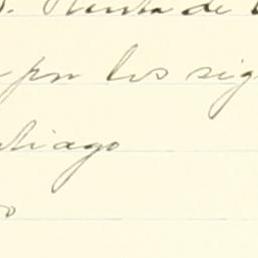 Renta de
por los sig
tiago